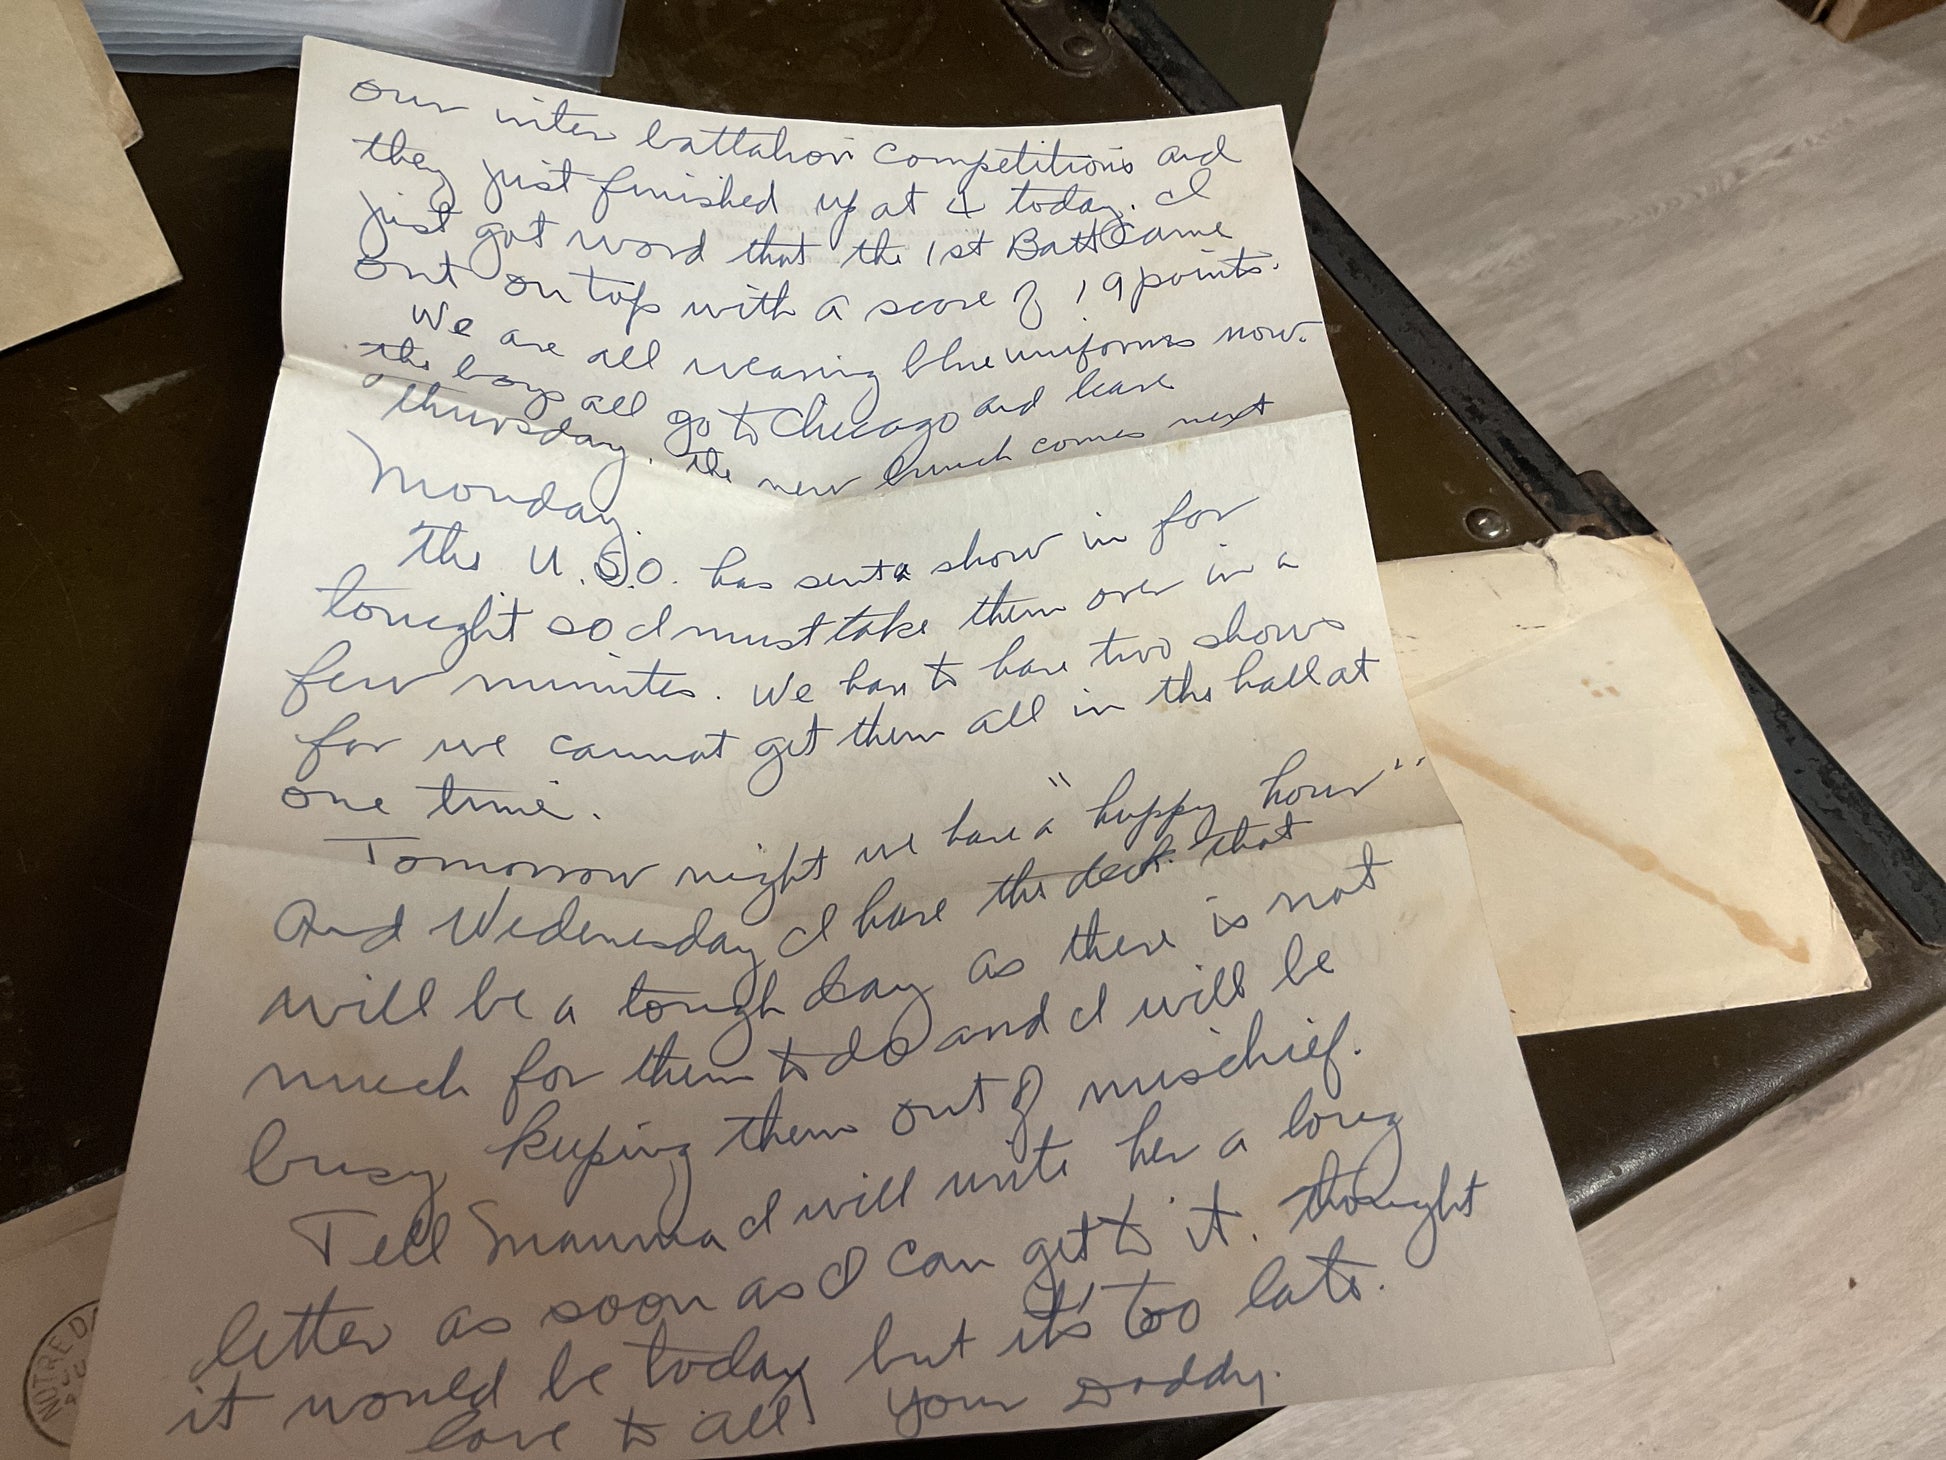 our inter battalion competitions and
they just finished up at 4 today. I
just got word that the 1st Batt came
out on top with a score of 19 points.
We are all wearing blue uniforms now.
the boys all go to Chicago and leave
thursday. the new bunch comes next
Monday.
the U.S.O. has sent a show in for
tonight so I must take them over in a
few minutes. We have to have two shows
for we cannot get them all in the hall at
one time.
Tomorrow night we have a "happy hour"
And Wednesday I have the deck. that
will be a tough day as there is not
much for them to do and I will be
busy keeping them out of mischief.
Tell Mamma I will write her a long
letter as soon as I can get to it. thought
it would be today but it's too late.
love to all your Daddy.
NOTRE DA